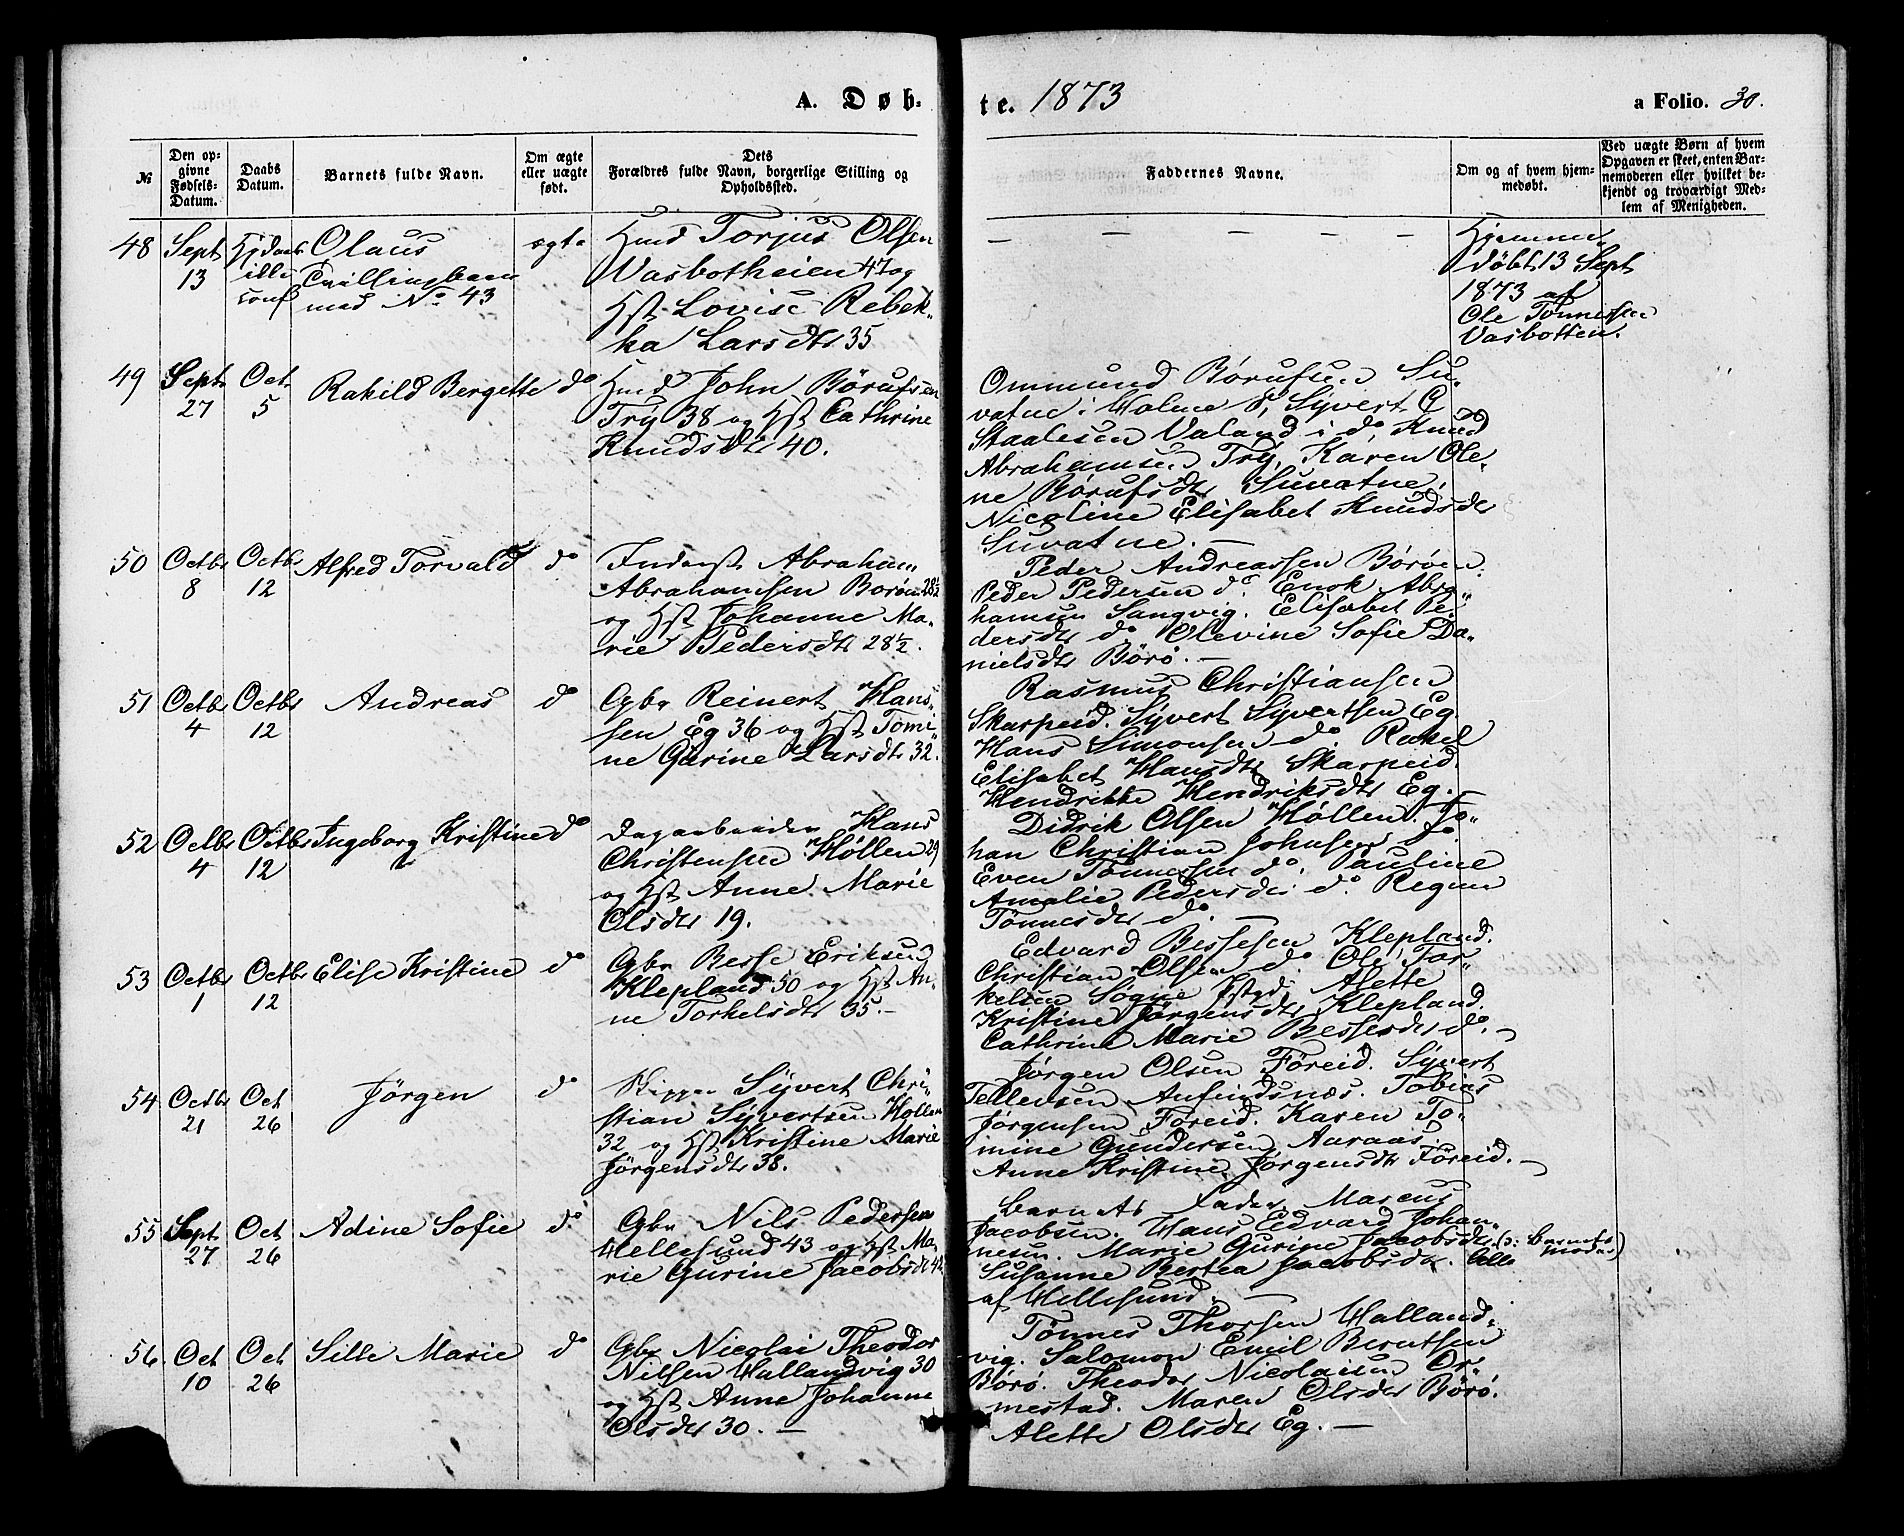 A. Døb-
te. 1873
a Folio. 30.
№
Den op-
givne
Fødsels-
Datum.
Daabs
Datum.
Barnets fulde Navn.
Om ægte
eller uægte
født.
Dets
Forældres fulde Navn, borgerlige Stilling og
Opholdssted.
Faddernes Navne.
Om og af hvem hjem-
medøbt.
Ved uægte Børn af hvem
Opgaven er skeet, enten Bar-
nemoderen eller hvilket be-
kjendt og troværdigt Med-
lem af Menigheden.
48
Sept
13
ikke
conf
Olaus
Tvillingbarn
med No 43
ægte
Hmd Torjus Olsen
Vasbotheien 47 og
Hst Lovise Rebek-
ka Larsdtr 35
— — — — —
Hjemme-
døbt 13 Sept
1873 af
Ole Tønnessen
Vasbotten.
49
Sept
27
Oct
5
Rakild Bergette
do
Hmd John Börufsen
Try 38 og Hst Cathrine
Knudsdtr 40.
Ommund Börufsen Su-
vatne i Holme P, Syvert
Staalesen Valand i do, Knud
Abrahamsen Try, Karen Ole-
ne Börufsdtr Suvatne,
Nicoline Elisabet Knudsdtr
Suvatne. —
50
Octbr
8
Octbr
12
Alfred Torvald
do
Inderst Abraham
Abrahamsen Borøen 28½
og Hst Johanne Ma-
rie Pedersdtr 28½.
Peder Andreassen Börøen.
Peder Pedersen do. Enok Abra-
hamsen Langvig. Elisabet Pe-
dersdtr do. Olevine Sofie Da-
nielsdtr Börö. —
51
Octbr
4
Octbr
12
Andreas
do
Gbr Reinert Hans-
sen Eg 36 og Hst Tomi-
ne Gurine Larsdtr 32.
Rasmus Christiansen
Skarpeid. Syvert Syvertsen Eg
Hans Simonsen do. Rakel
Elisabet Hansdtr Skarpeid.
Hendrikke Hendriksdtr Eg. —
52
Octbr
4
Octbr
12
Ingeborg Kristine
do
Dagarbeider Hans
Christensen Høllen 29
og Hst Anne Marie
Olsdtr 19.
Didrik Olsen Høllen. Jo-
han Christian Johnsen do
Even Tønnessen do. Pauline
Amalie Pedersdtr do. Regine
Tønnesdtr do. —
53
Octbr
1
Octbr
12
Elise Kristine
do
Gbr Besse Eriksen
Klepland 50 og Hst An-
ne Torkelsdtr 35. —
Edvard Bessesen Klepland.
Christian Olsen do. Ole Tor-
kelsen Søgne Pstgd. Alette
Kristine Jørgensdtr Klepland.
Cathrine Marie Bessesdtr do. —
54
Octbr
21
Oct
26
Jörgen
do
Skipper Syvert Chri-
stian Syvertsen Hollen
32 og Hst Kristine Marie
Jørgensdtr 38.
Jørgen Olsen Føreid. Syvert
Tellensen Aufindsnæs. Tobias
Jørgensen Føreid. Karen To-
mine Gundersen Aaraas.
Anne Kristine Jørgensdtr Føreid. —
55
Sept
27
Oct
26
Adine Sofie
do
Gbr Nils Pedersen
Hellesund 43 og Hst Ma-
rie Gurine Jacobsdtr 44
Barnets Fader. Marcus
Jacobsen. Hans Edvard Johan-
nesen. Marie Gurine Jacobsdtr (ɔ: Barnets
Moder)
Susanne Bertea Jacobsdtr. Alle
af Hellesund. —
56
Oct
10
Oct
26
Sille Marie
do
Gbr Nicolai Theodor
Nilsen Hallandvig 30
og Hst Anne Johanne
Olsdtr 30. —
Tønnes Thorsen Halland-
vig. Salomon Emil Berntsen
Börö. Theodor Nicolaisen Or-
mestad. Maren Olsdtr Börö.
Alette Olsdtr Eg. —